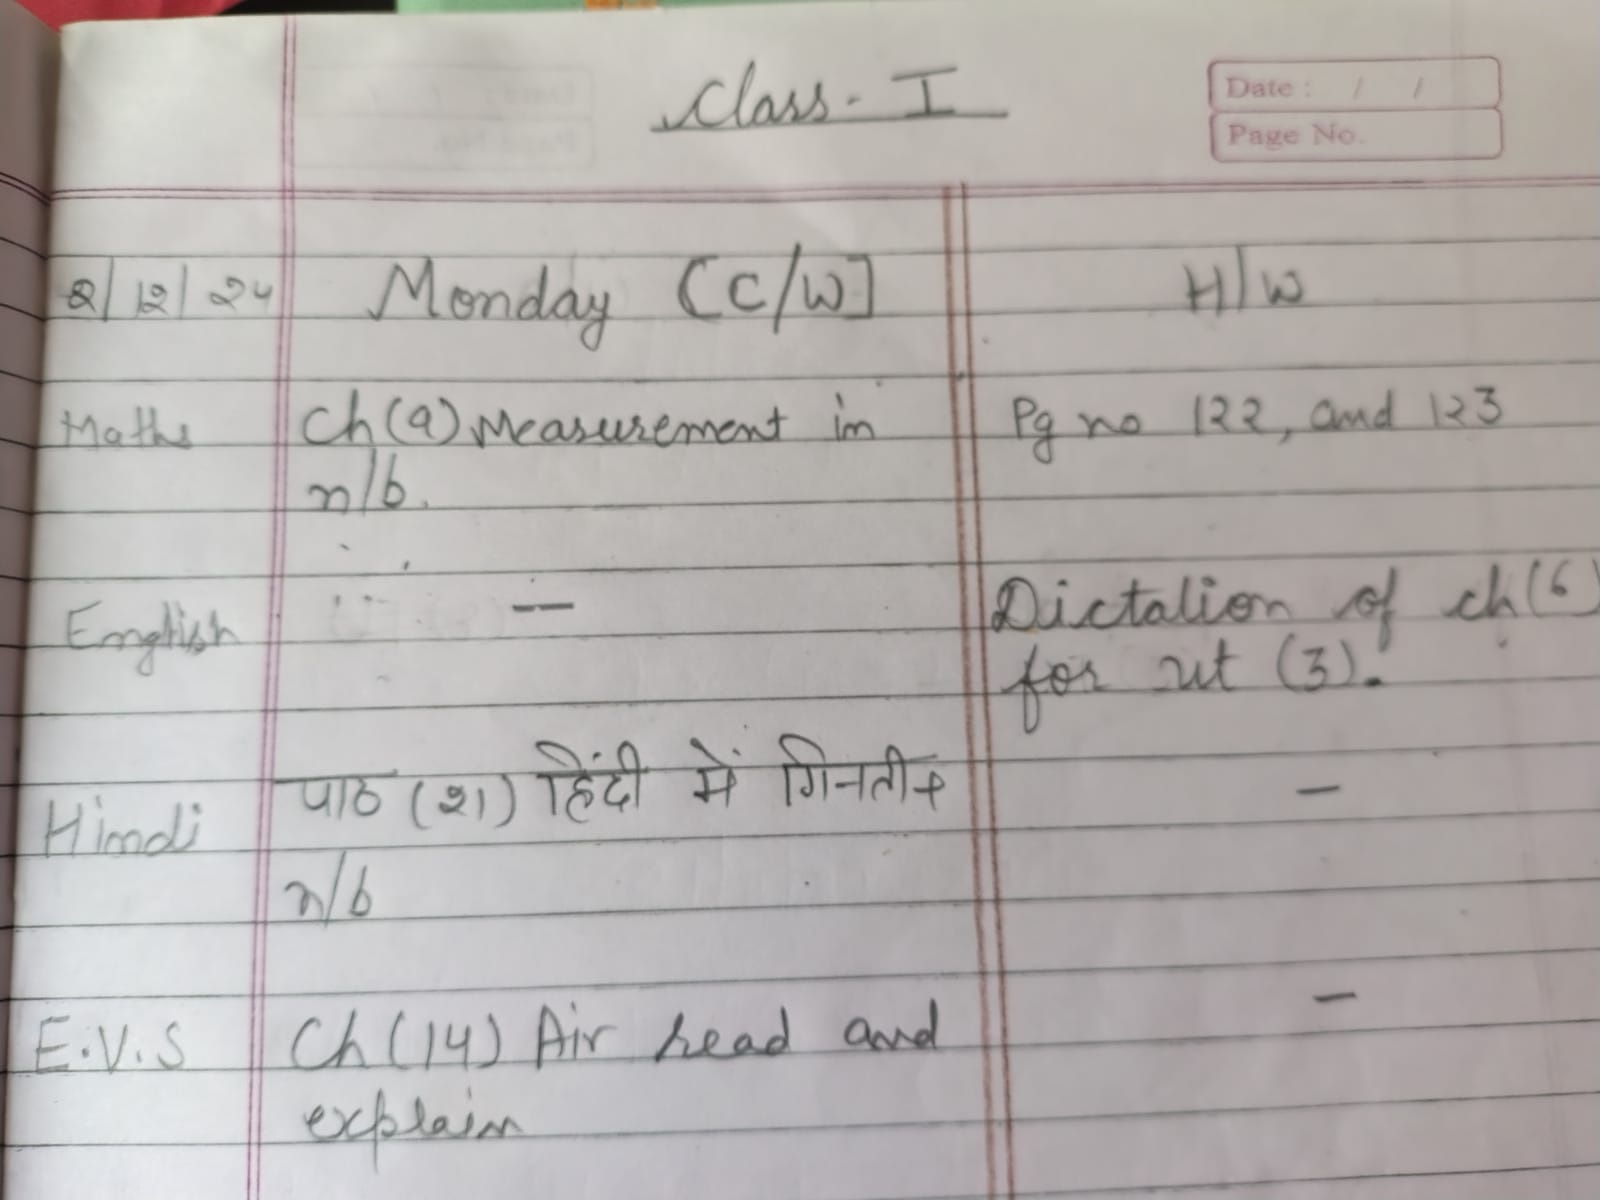 Class - I
Date : / /
Page No.
2/12/24 Monday [C/W] H/W
Maths Ch(9) Measurement in Pg no 122, and 123
n/b.
English — Dictation of ch(6)
for ut (3).
Hindi पाठ (21) हिंदी में गिनती —
n/b
E.V.S Ch(14) Air read and —
explain